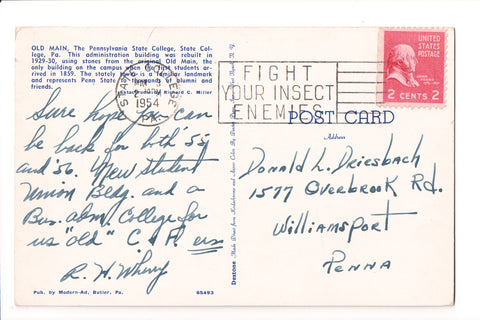 OLD MAIN, The Pennsylvania State College, State Col-
lege, Pa. This administration building was rebuilt in
1929-30, using stones from the original Old Main, the
only building on the campus when the first students ar-
rived in 1859. The stately is a familiar landmark
and represents Penn State to thousands of alumni and
friends. by Richard C. Miller
STATE COLLEGE
1954
PA.
FIGHT
YOUR INSECT
ENEMIES
UNITED
STATES
POSTAGE
2 CENTS 2
POST CARD
Address
Sure hope you can
be back for both '55
and '56. New student
Union Bldg. and a
Bus. adm. College for
us "old" C & F. ers
R. H. Wherry
Donald L. Driesbach
1577 Overbrook Rd.
Williamsport
Penna
Pub. by Modern-Ad. Butler, Pa.
65493